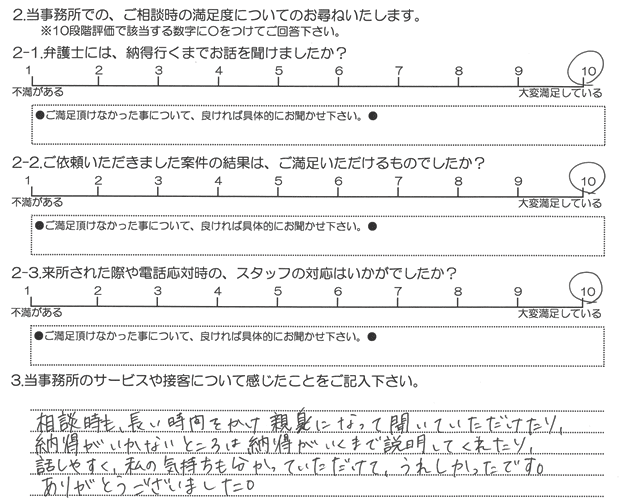 2.当事務所での、ご相談時の満足度についてのお尋ねいたします。
※10段階評価で該当する数字に○をつけてご回答下さい。
2-1.弁護士には、納得行くまでお話を聞けましたか？
1 2 3 4 5 6 7 8 9 10
不満がある 大変満足している
●ご満足頂けなかった事について、良ければ具体的にお聞かせ下さい。●
2-2.ご依頼いただきました案件の結果は、ご満足いただけるものでしたか？
1 2 3 4 5 6 7 8 9 10
不満がある 大変満足している
●ご満足頂けなかった事について、良ければ具体的にお聞かせ下さい。●
2-3.来所された際や電話応対時の、スタッフの対応はいかがでしたか？
1 2 3 4 5 6 7 8 9 10
不満がある 大変満足している
●ご満足頂けなかった事について、良ければ具体的にお聞かせ下さい。●
3.当事務所のサービスや接客について感じたことをご記入下さい。
相談時も、長い時間をかけ親身になって聞いていただけたり、
納得がいかないところは納得がいくまで説明してくれたり、
話しやすく、私の気持ちも分かっていただけて、うれしかったです。
ありがとうございました。